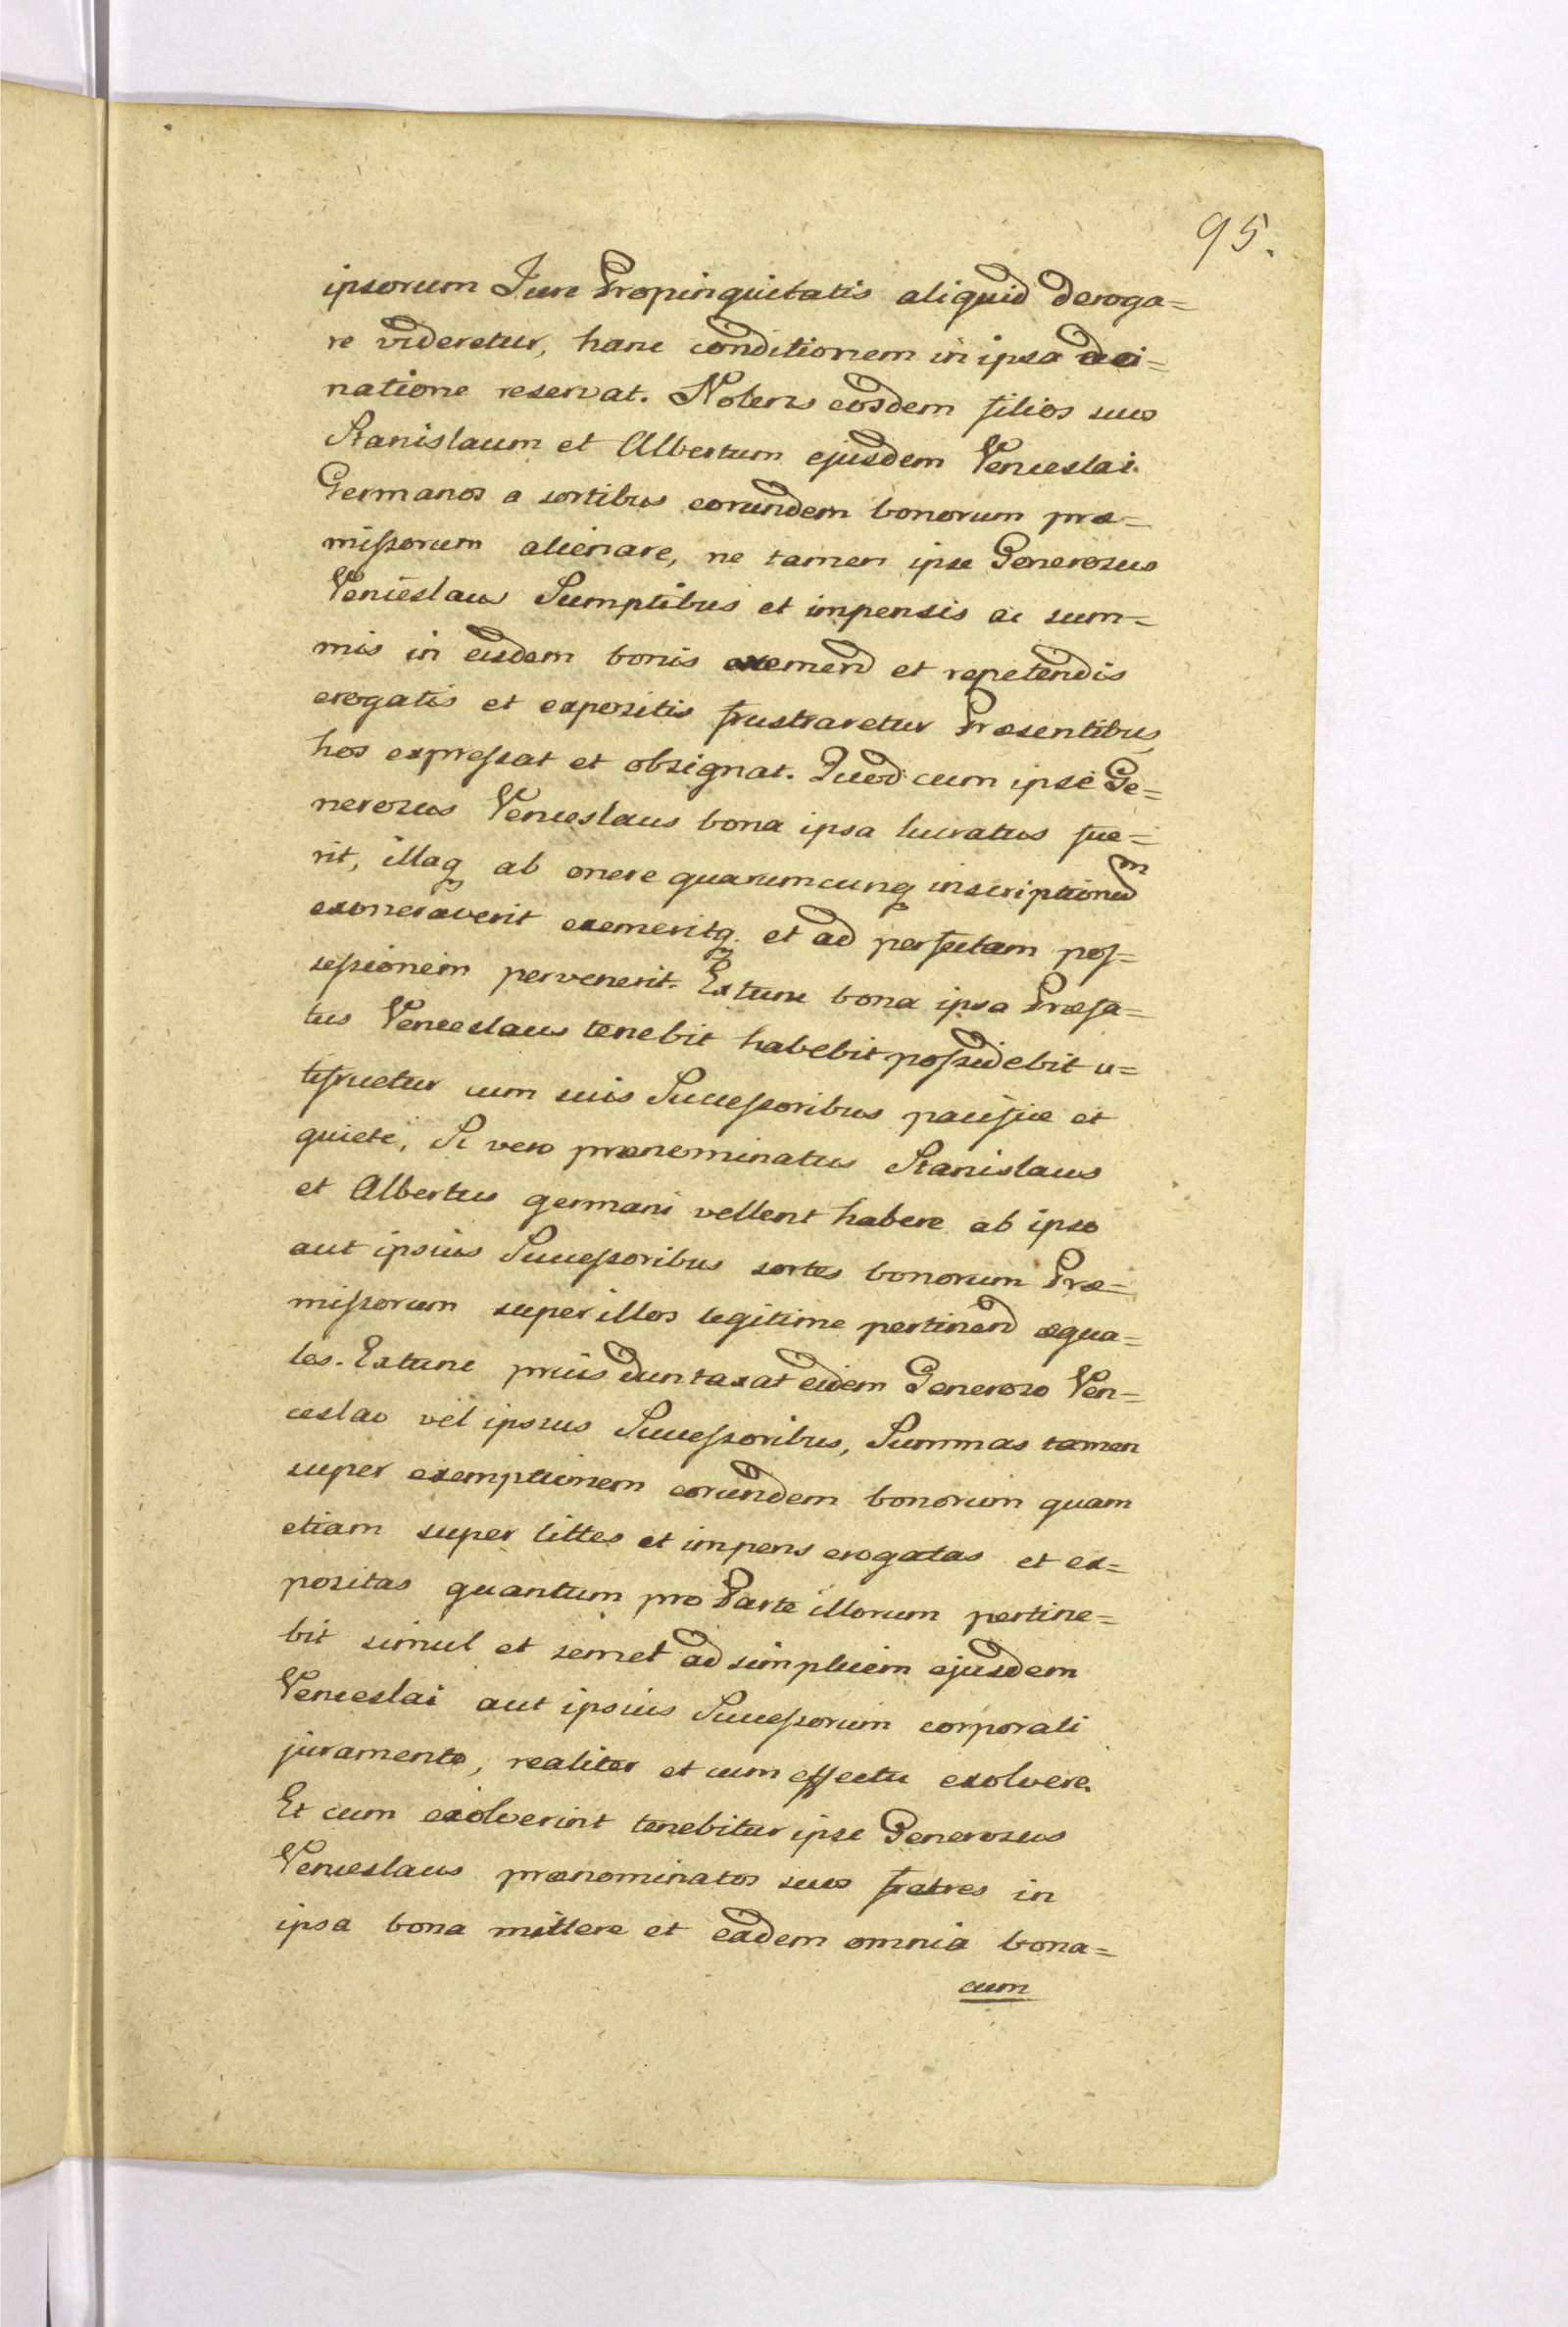 95.
ipsorum Jure Propinquitatis aliquid deroga=
re videretur, hanc conditionem in ipsa
natione reservat. Nolens eosdem filios suos
Stanislaum et Albertum ejusdem Venceslai
Germanos a sortibus eorundem bonorum præ=
missorum alienare, ne tamen ipse Generosus
Venceslaus Sumptibus et impensis ac sum=
mis in eisdem bonis eximend et repetendis
erogatis et expositis frustraretur Præsentibus
hos expressat et obsignat. Quod cum ipse Ge=
nerosus Venceslaus bona ipsa lucratus fue=
rit, illaq ab onere quarumcunq inscriptionum
exoneraverit exemeritq. et ad perfectam pos=
sessionem pervenerit. Extunc bona ipsa Præfa=
tus Venceslaus tenebit habebit possidebit u=
tifruetur cum suis Successoribus pacifice et
quiete, Si vero prænominatus Stanislaus
et Albertus germani vellent habere ab ipso
aut ipsius Successoribus sortes bonorum Præ=
missorum super illos legitime pertinend æqua=
les. Extunc prius duntaxat eidem Generoso Ven=
ceslao vel ipsius Successoribus, Summas tamen
super exemptionem eorundem bonorum quam
etiam super littes et impens erogatas et ex=
positas quantum pro Parte illorum pertine=
bit simul et semel ad simplicem ejusdem
Venceslai aut ipsius Successorum corporali
juramento, realiter et cum effectu exolvere.
Et cum exolverint tenebitur ipse Generosus
Venceslaus prænominatos suos fratres in
ipsa bona mittere et eadem omnia bona=
cum